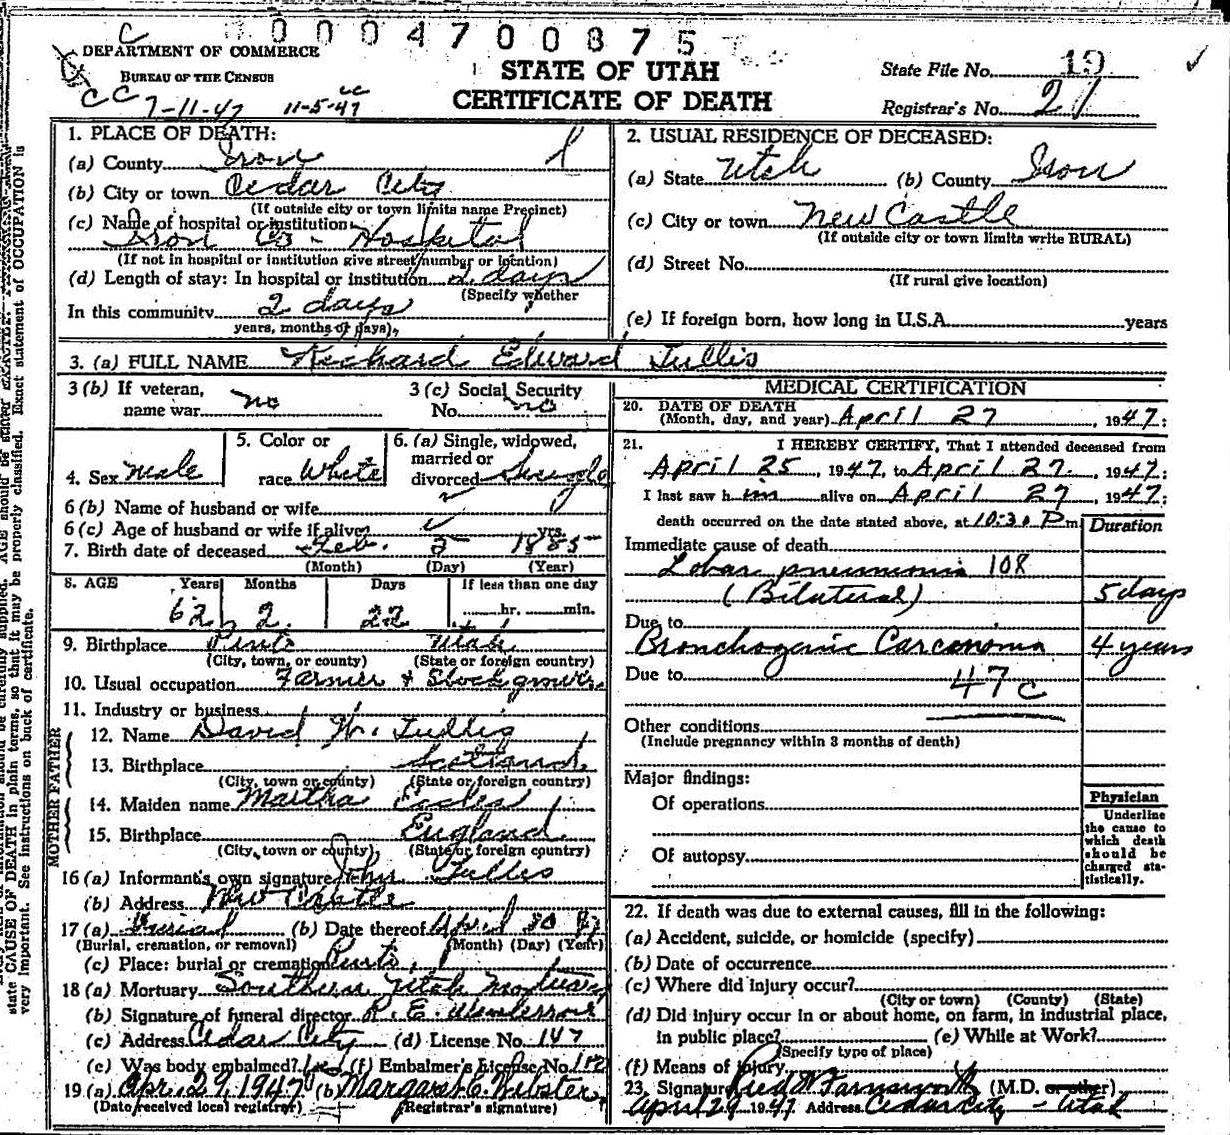 0 0 0 4 7 0 0 8 7 5
C
DEPARTMENT OF COMMERCE
BUREAU OF THE CENSUS
CC 7-11-47 11-5-47
STATE OF UTAH
CERTIFICATE OF DEATH
State File No. 19
Registrar's No. 21
1. PLACE OF DEATH:
(a) County Iron
(b) City or town Cedar City
(If outside city or town limits name Precinct)
(c) Name of hospital or institution
Iron Co. Hospital
(If not in hospital or institution give street number or location)
(d) Length of stay: In hospital or institution 2 days
(Specify whether
In this community 2 days
years, months or days)
2. USUAL RESIDENCE OF DECEASED:
(a) State Utah (b) County Iron
(c) City or town New Castle
(If outside city or town limits write RURAL)
(d) Street No.
(If rural give location)
(e) If foreign born, how long in U.S.A. years
3. (a) FULL NAME Richard Edward Tullis
3 (b) If veteran, name war no
3 (c) Social Security No. no
4. Sex Male
5. Color or race White
6. (a) Single, widowed, married or divorced Single
6 (b) Name of husband or wife
6 (c) Age of husband or wife if alive yrs.
7. Birth date of deceased Feb. 5 1885
(Month) (Day) (Year)
8. AGE Years Months Days If less than one day
62 2 22 hr. min.
9. Birthplace Pinto Utah
(City, town, or county) (State or foreign country)
10. Usual occupation Farmer & Stockgrower
11. Industry or business
FATHER
12. Name David W. Tullis
13. Birthplace Scotland
(City, town or county) (State or foreign country)
MOTHER
14. Maiden name Martha Eccles
15. Birthplace England
(City, town or county) (State or foreign country)
16 (a) Informant's own signature John Tullis
(b) Address New Castle
17 (a) Burial (b) Date thereof April 30 47
(Burial, cremation, or removal) (Month) (Day) (Year)
(c) Place: burial or cremation Pinto
18 (a) Mortuary Southern Utah Mortuary
(b) Signature of funeral director R. E.
(c) Address Cedar City (d) License No. 147
(e) Was body embalmed? yes (f) Embalmer's License No.
19 (a) Apr. 29, 1947 (b) Margaret C. Webster
(Date received local registrar) (Registrar's signature)
MEDICAL CERTIFICATION
20. DATE OF DEATH
(Month, day, and year) April 27, 1947:
21. I HEREBY CERTIFY, That I attended deceased from
April 25, 1947, to April 27, 1947:
I last saw him alive on April 27, 1947:
death occurred on the date stated above, at 10:30 P.m. Duration
Immediate cause of death
Lobar pneumonia 108
(Bilateral) 5 days
Due to
Bronchogenic Carconoma 4 years
Due to 47c
Other conditions
(Include pregnancy within 3 months of death)
Major findings:
Of operations
Of autopsy
Physician
Underline
the cause to
which death
should be
charged sta-
tistically.
22. If death was due to external causes, fill in the following:
(a) Accident, suicide, or homicide (specify)
(b) Date of occurrence
(c) Where did injury occur?
(City or town) (County) (State)
(d) Did injury occur in or about home, on farm, in industrial place,
in public place? (e) While at Work?
(Specify type of place)
(f) Means of Injury
23. Signature Farnsworth (M.D. or other)
April 29 1947 Address Cedar City - Utah
state CAUSE OF DEATH in plain terms, so that it may be properly classified. Exact statement of OCCUPATION is
very important. See instructions on back of certificate.